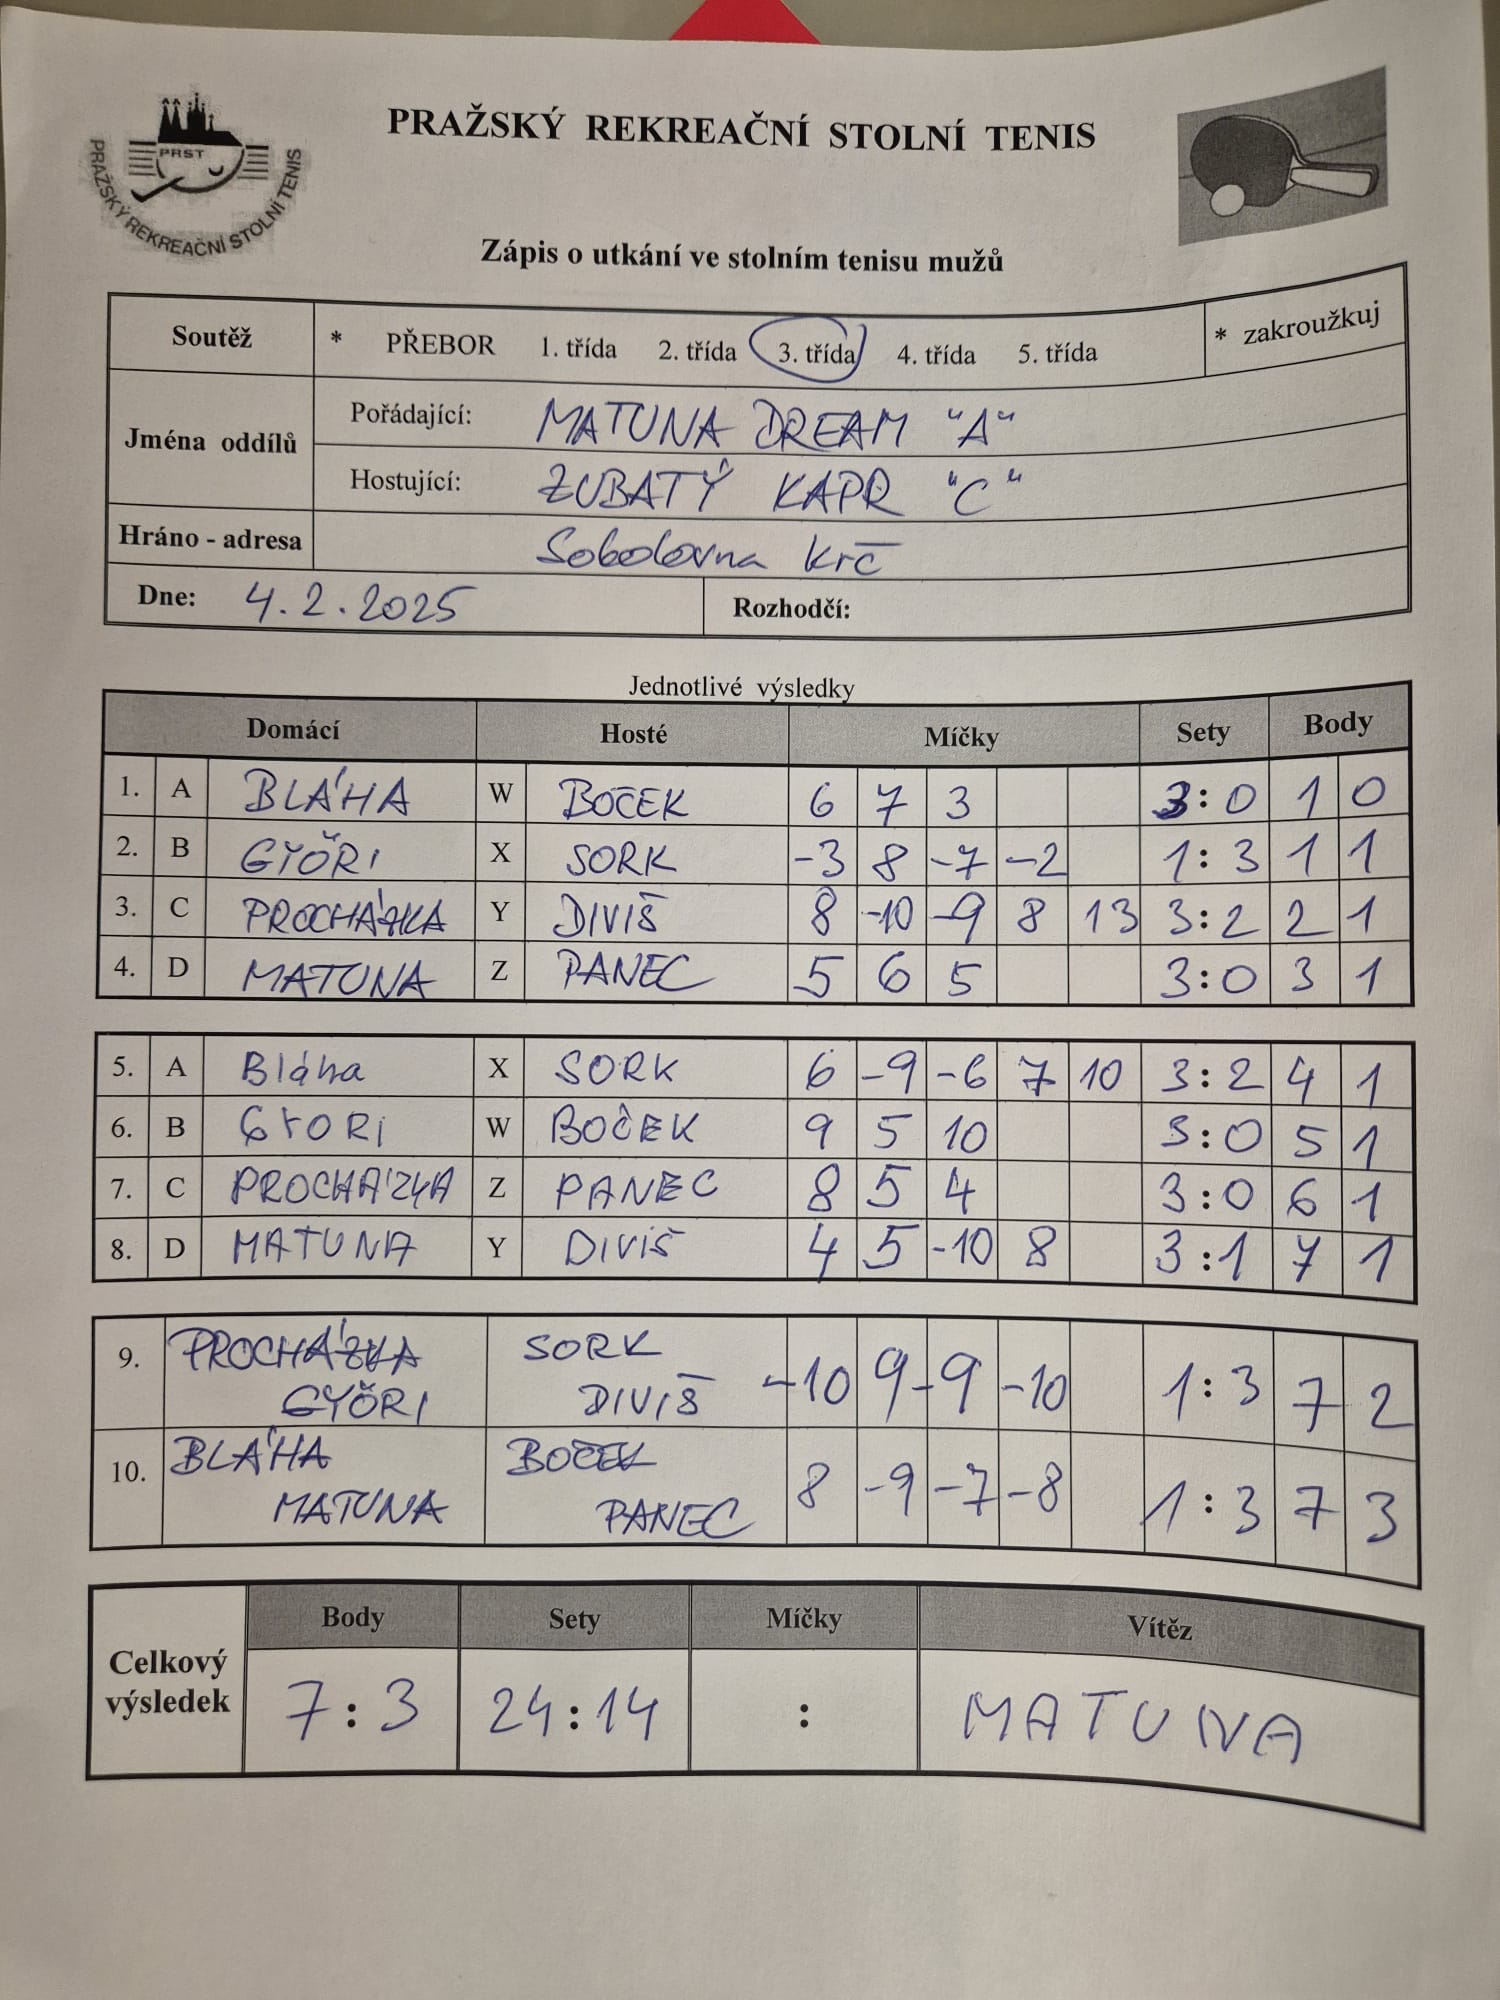 PRST
PRAŽSKÝ REKREAČNÍ STOLNÍ TENIS
PRAŽSKÝ REKREAČNÍ STOLNÍ TENIS
Zápis o utkání ve stolním tenisu mužů
Soutěž * PŘEBOR 1. třída 2. třída 3. třída 4. třída 5. třída * zakroužkuj
Jména oddílů
Pořádající: MATUNA DREAM "A"
Hostující: ZUBATÝ KAPR "C"
Hráno - adresa Sokolovna Krč
Dne: 4.2.2025 Rozhodčí:
Jednotlivé výsledky
Domácí Hosté Míčky Sety Body
1. A BLÁHA W BOČEK 6 7 3 3:0 1 0
2. B GYŐRI X SORK -3 8 -7 -2 1:3 1 1
3. C PROCHÁZKA Y DIVIŠ 8 -10 -9 8 13 3:2 2 1
4. D MATUNA Z PANEC 5 6 5 3:0 3 1
5. A Bláha X SORK 6 -9 -6 7 10 3:2 4 1
6. B GYORI W BOČEK 9 5 10 3:0 5 1
7. C PROCHÁZKA Z PANEC 8 5 4 3:0 6 1
8. D MATUNA Y DIVIŠ 4 5 -10 8 3:1 7 1
9. PROCHÁZKA SORK
GYŐRI DIVIŠ -10 9 -9 -10 1:3 7 2
10. BLÁHA BOČEK
MATUNA PANEC 8 -9 -7 -8 1:3 7 3
Celkový výsledek
Body Sety Míčky Vítěz
7:3 24:14 : MATUNA